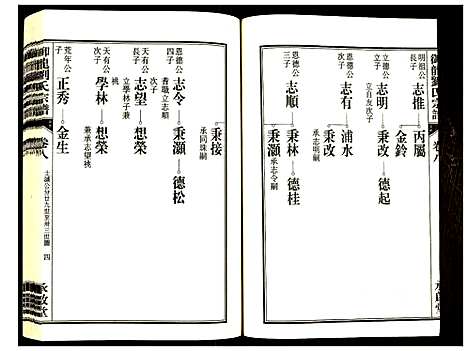 明祖公長子
志推
丙屬
金鈴
立子
志明
立自友次子
秉改
德起
恩德公次子
志有
浦水
秉改
承志明嗣
恩德公三子
志順
秉林
德桂
秉灝
承志令嗣
秉接
承同珠嗣
恩德公四子
志令
秉灝
德松
天有公長子
志望
想榮
立學林子兼祧
天有公次子
學林
想榮
兼承志望祧
荒年公子
正秀
金生
御龍劉氏宗譜
卷八
四
承啟堂